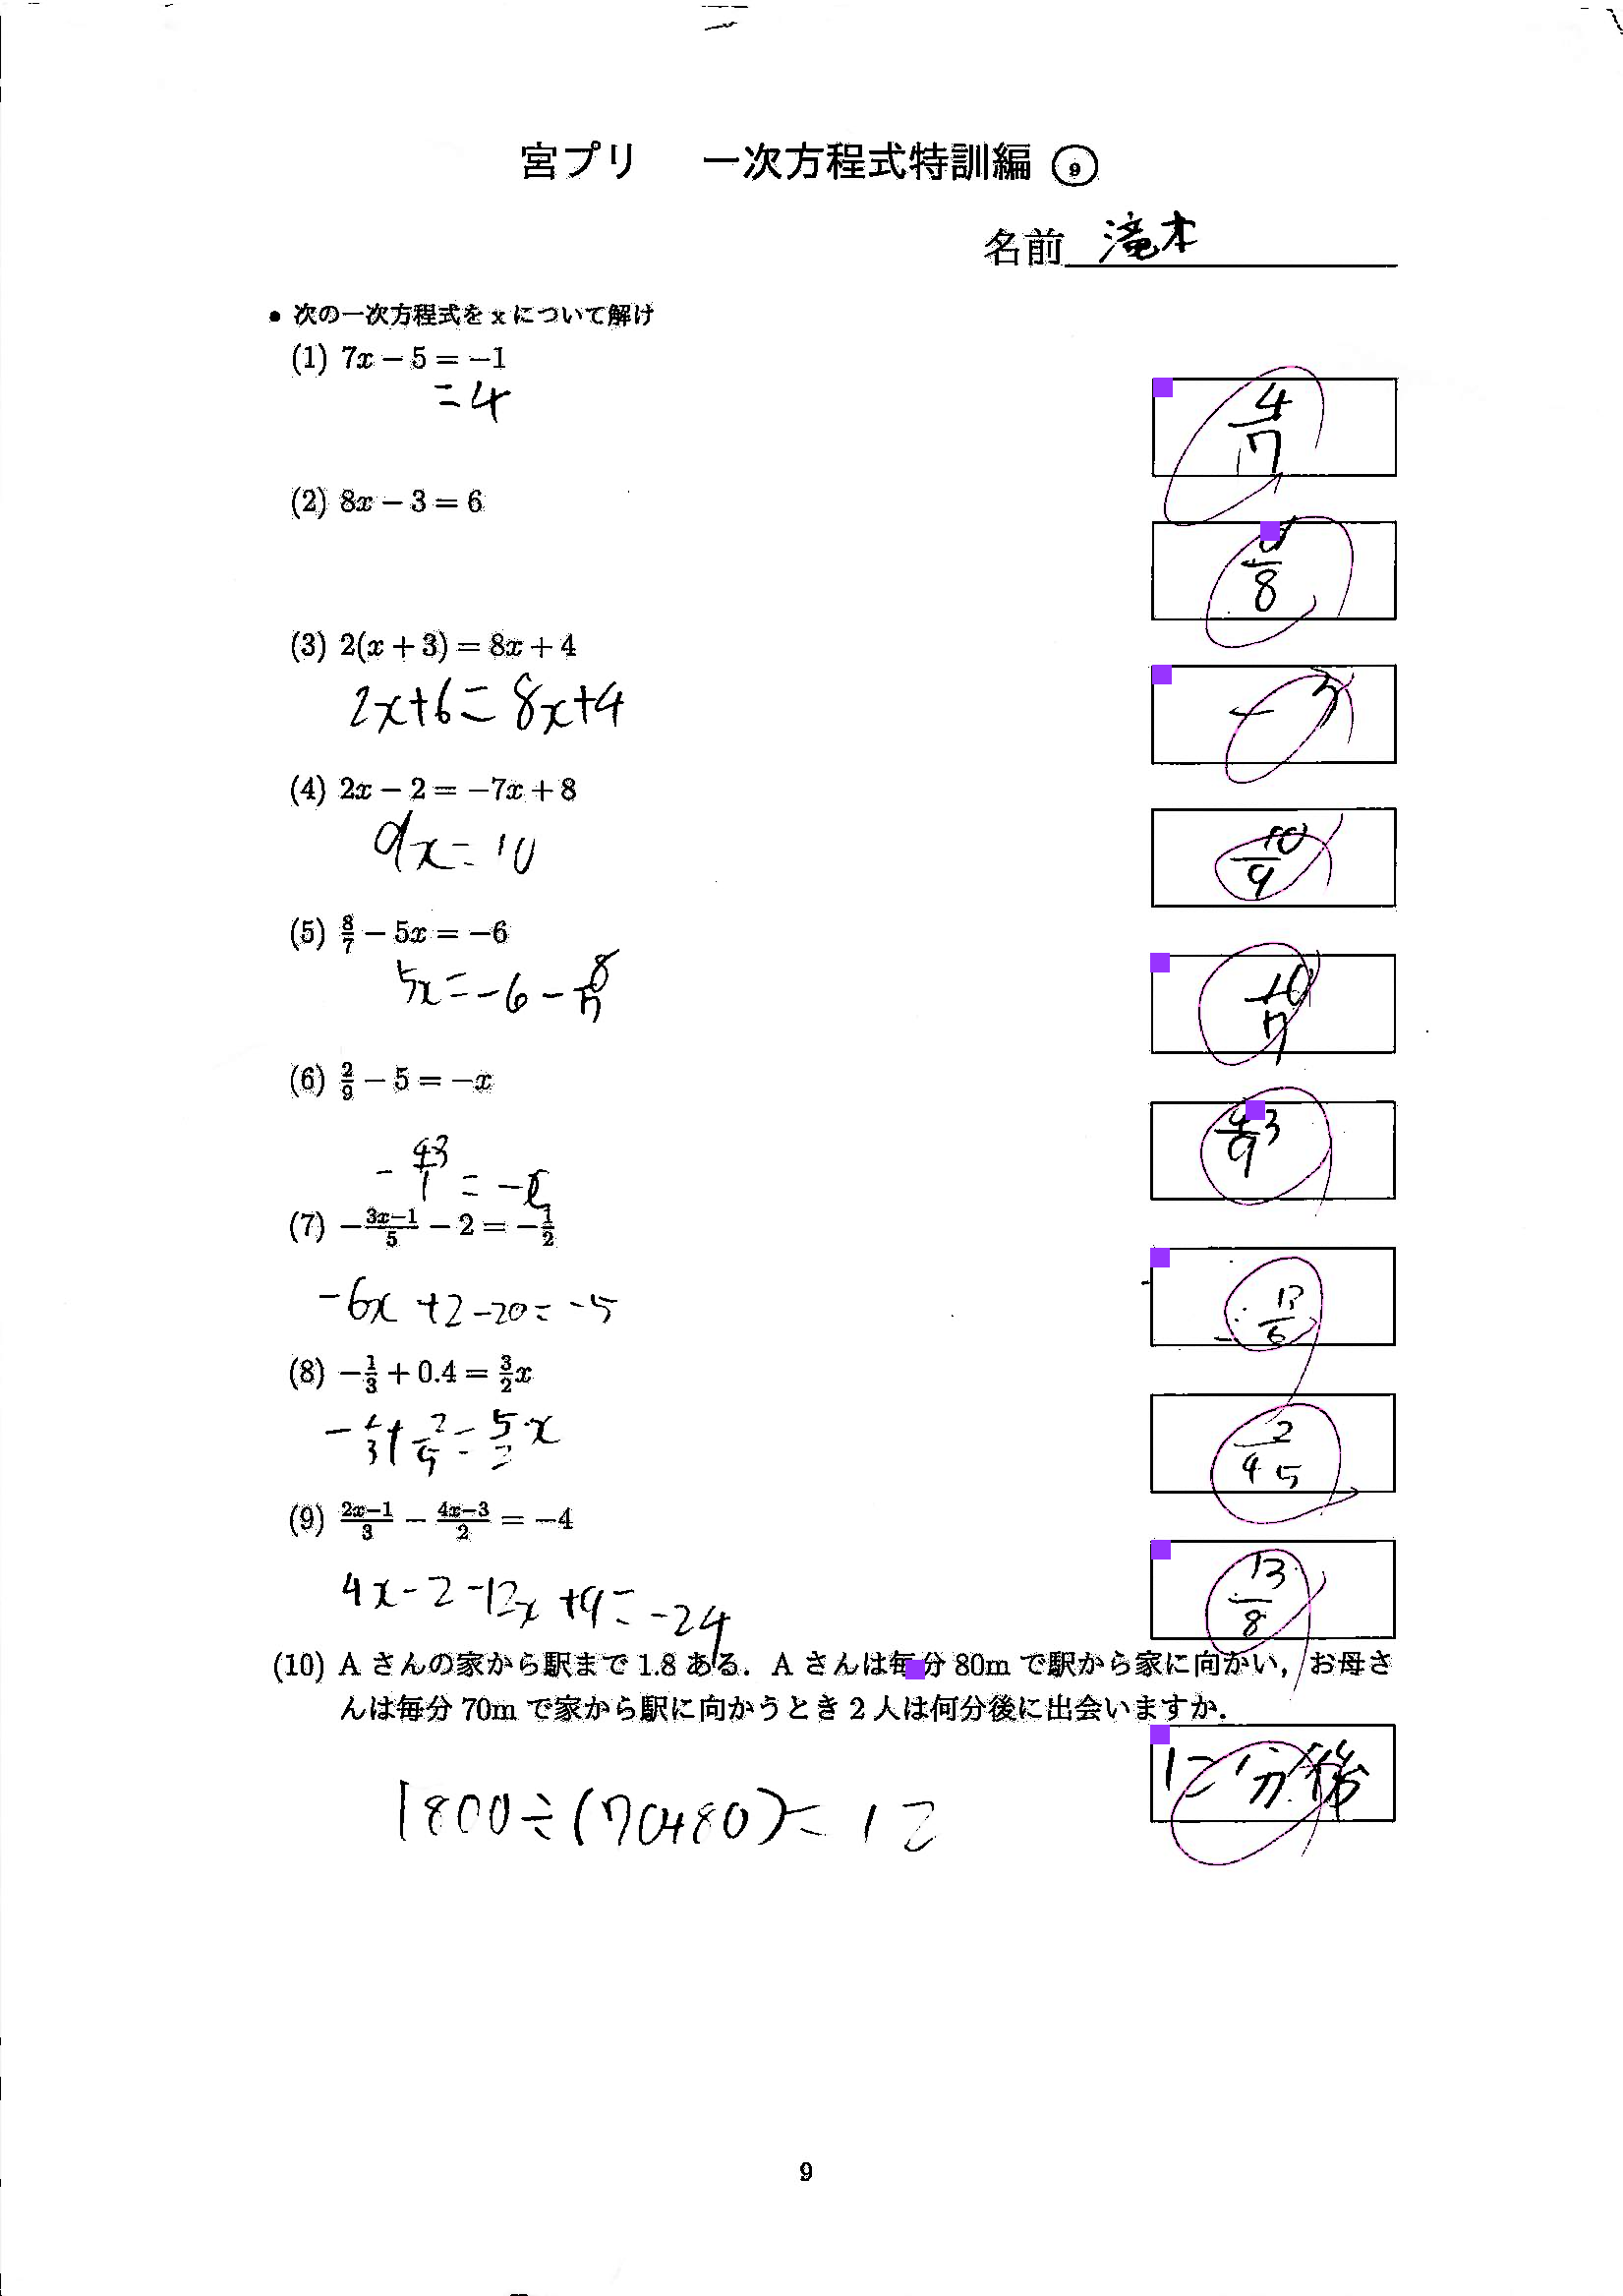 宮プリ 一次方程式特訓編 ⑨
名前 滝本
• 次の一次方程式を x について解け
(1) 7x − 5 = −1
= 4
4/7
(2) 8x − 3 = 6
/8
(3) 2(x + 3) = 8x + 4
2x+6 = 8x+4
(4) 2x − 2 = −7x + 8
9x = 10
10/9
(5) 8/7 − 5x = −6
5x = -6 - 8/7
10/7
(6) 2/9 − 5 = −x
43/9
(7) −(3x−1)/5 − 2 = −1/2
-6x + 2 - 20 = -5
(8) −1/3 + 0.4 = 3/2 x
2/45
(9) (2x−1)/3 − (4x−3)/2 = −4
4x - 2 - 12x + 9 = -24
13/8
(10) A さんの家から駅まで 1.8 ある. A さんは毎分 80m で駅から家に向かい, お母さ
んは毎分 70m で家から駅に向かうとき 2 人は何分後に出会いますか.
12分後
1800÷(70+80) = 12
9